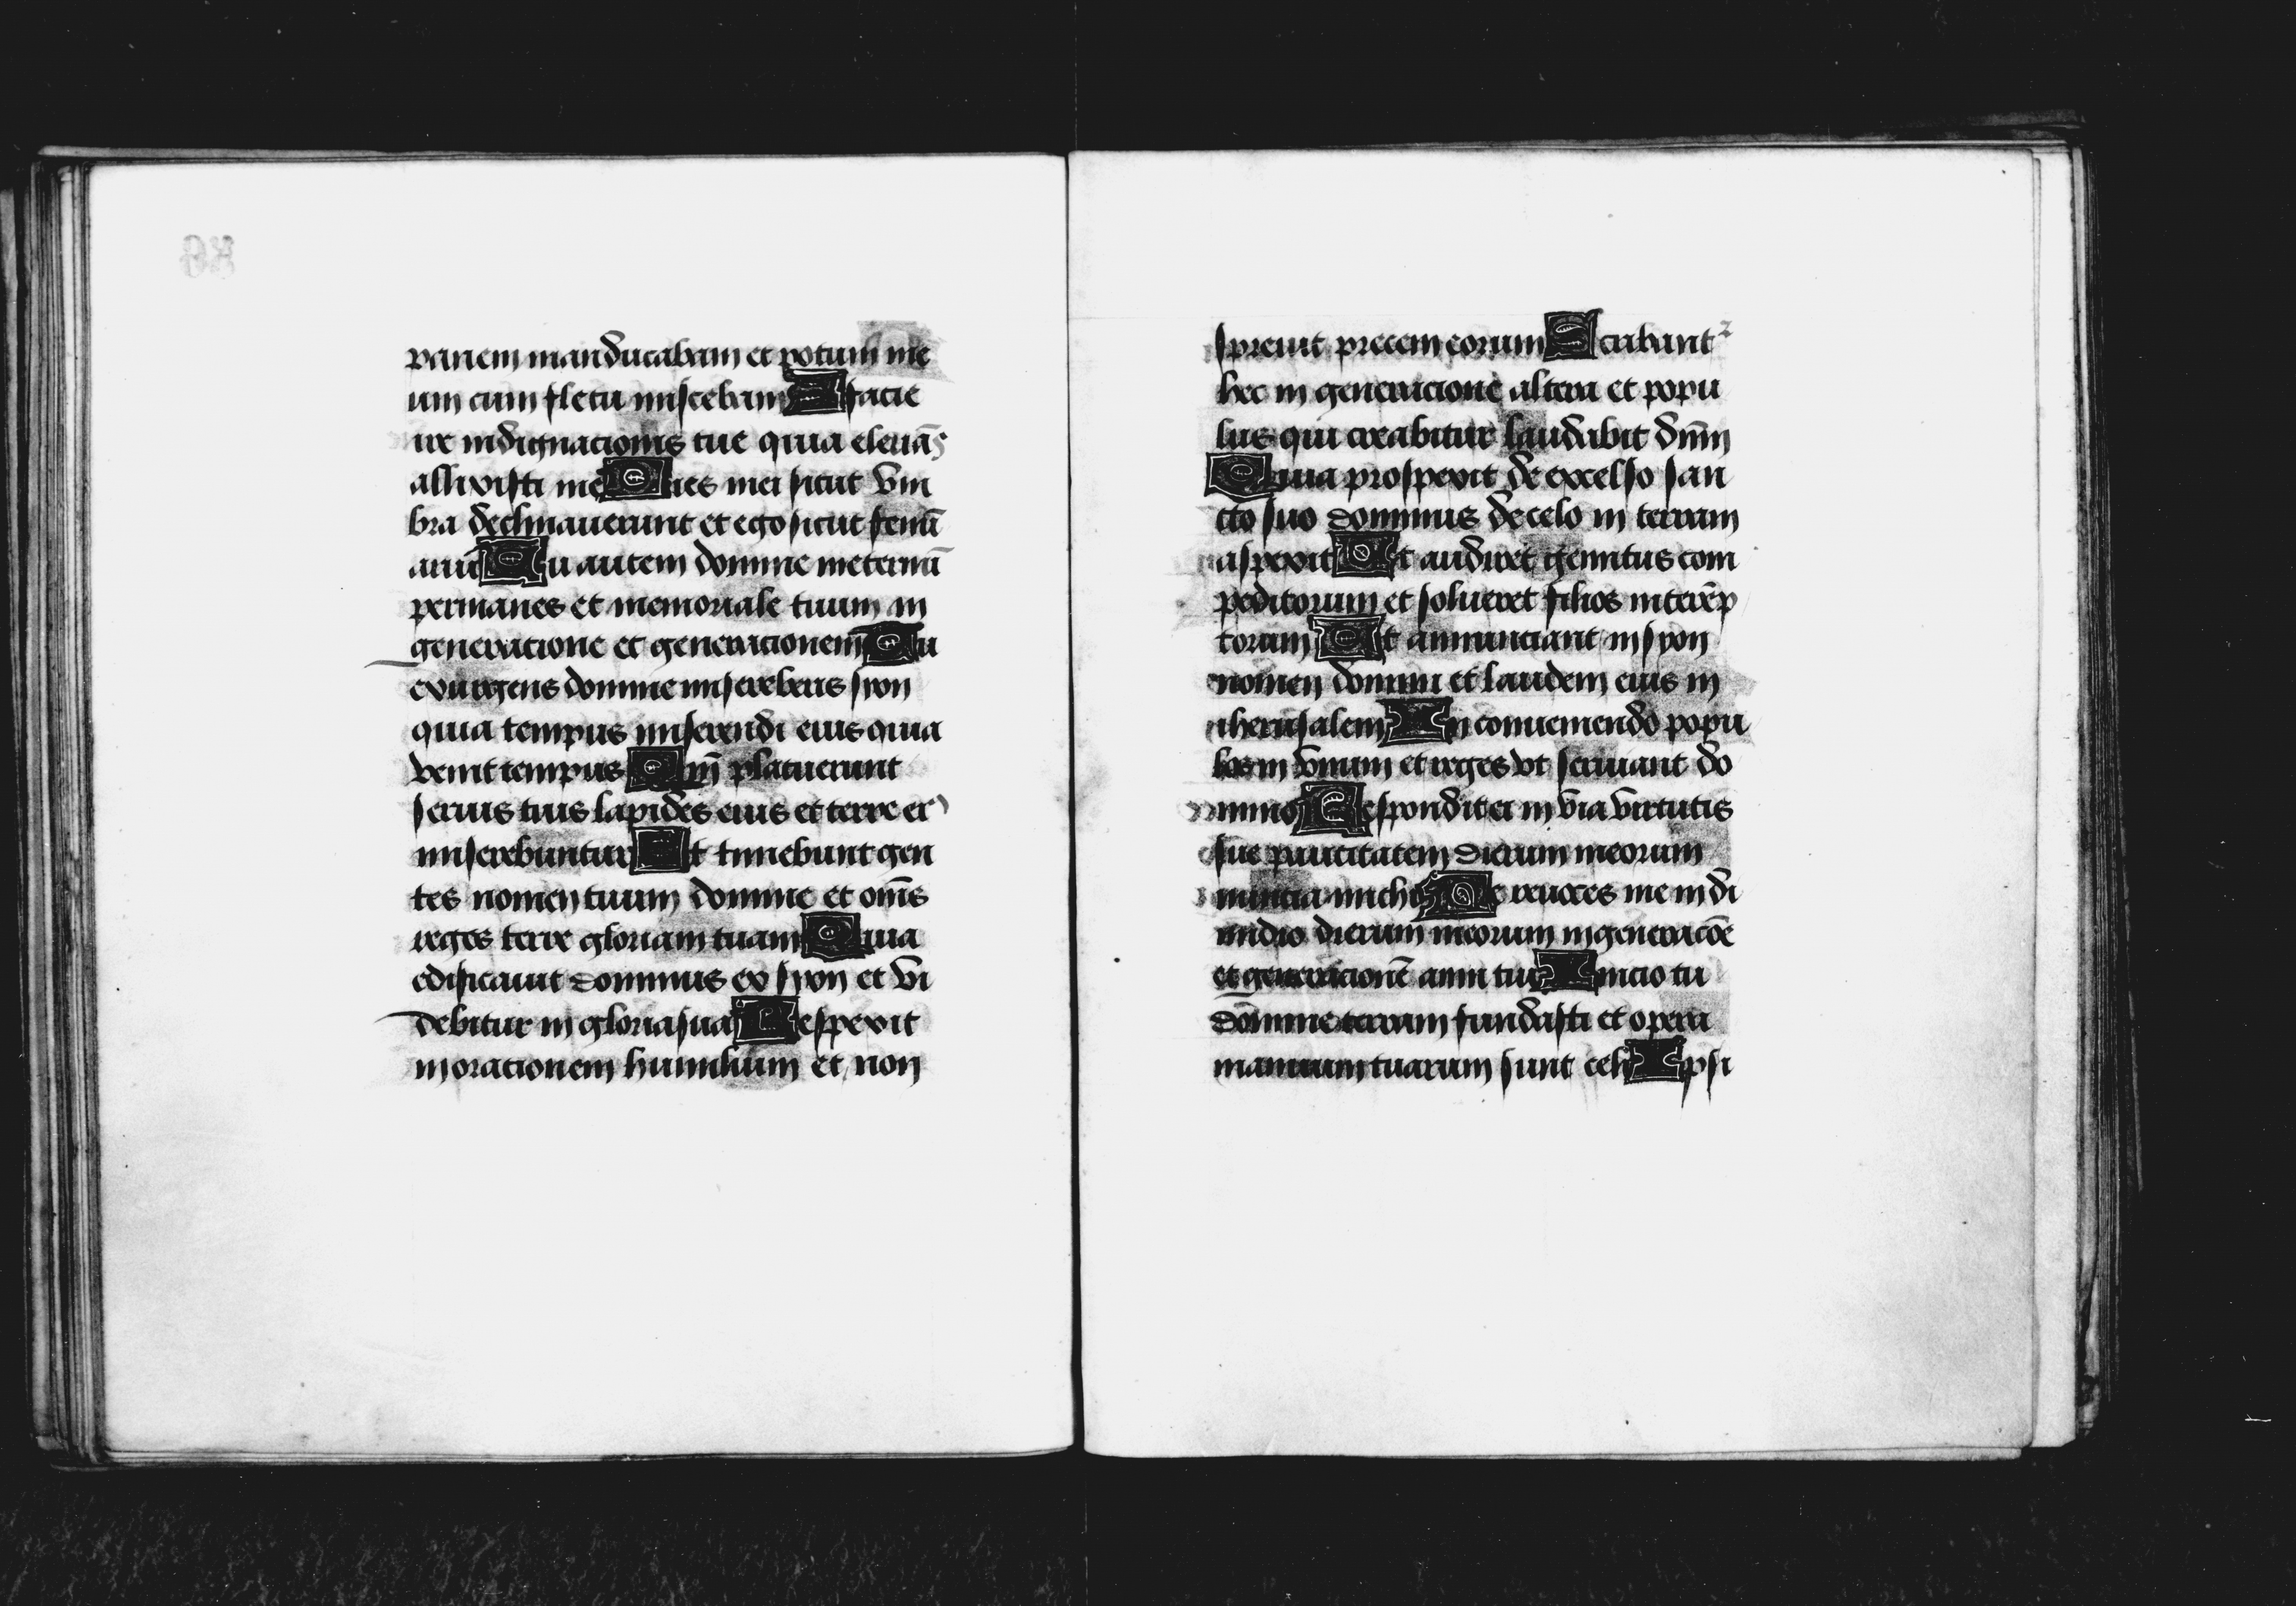 panem manducabam et potum me
um cum fletu miscebam A facie
ire indignacionis tue quia eleuās
allixisti me Dies mei sicut vm
bra declinauerunt et ego sicut fenū
arui Tu autem domine ineternū
permanes et memoriale tuum in
generacione et generacionem Tu
exurgens domine misereberis syon
quia tempus miserendi eius quia
venit tempus Qm̄ placuerunt
seruis tuis lapides eius et terre ei
miserebuntur Et timebunt gen
tes nomen tuum domine et oms̄
reges terre gloriam tuam Quia
edificauit dominus ex syon et vi
debitur in gloria sua Respexit
inoracionem humilium et non
spreuit precem eorum Scribantr
hec in generacione altera et popu
lus qui creabitur laudabit dnm̄
Quia prospexit de excelso san
cto suo dominus decelo in terram
aspexit Ut audiret gemitus com
peditorum et solueret filios interēp
torum Ut annunciant in syon
nomen domini et laudem eius in
iherusalem In conueniendo popu
los in vnum et reges vt seruiant do
mino Respondit ei in via virtutis
sue paucitatem dierum meorum
nuncia michi Ne reuoces me in di
midio dierum meorum ingeneracōe
et generacionē anni tui Inicio tu
domine terram fundasti et opera
manuum tuarum sunt celi Ipsi